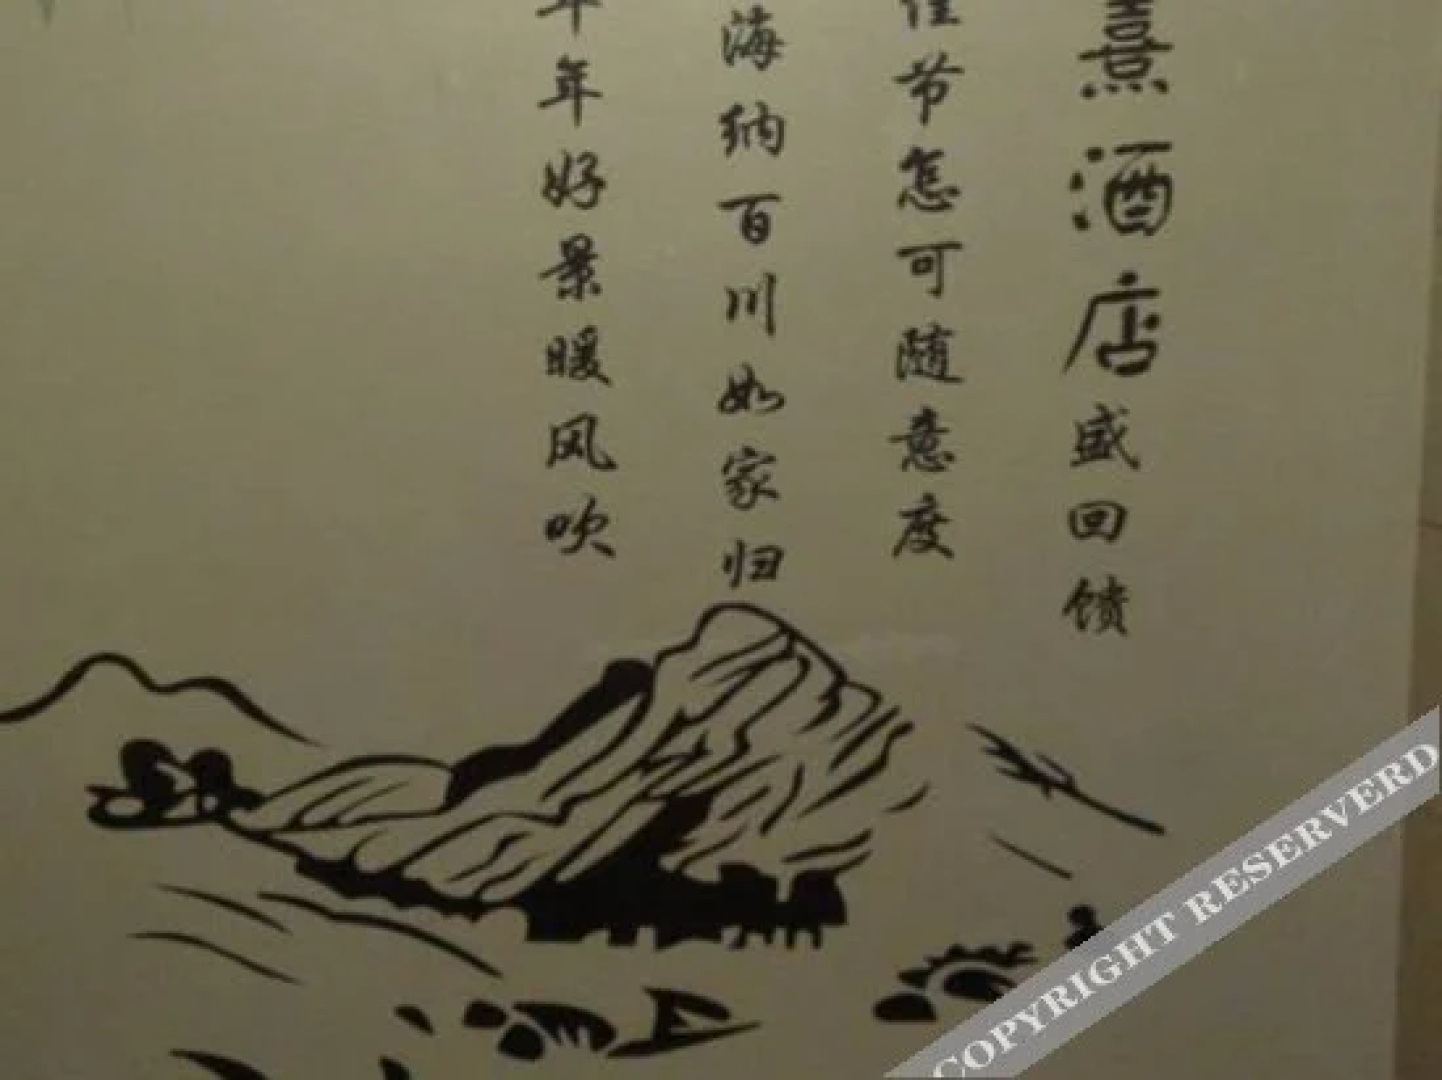 熹酒店盛回馈
佳节怎可随意度
海纳百川如家归
年年好景暖风吹
COPYRIGHT RESERVERD